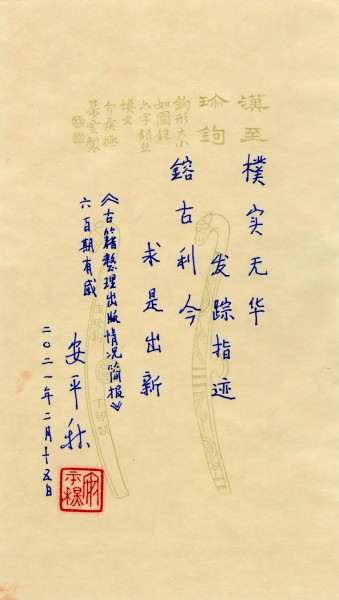 漢至
鉤
鉤形大小
如圖錯
六字銀丝
填文
樸实无华
发踪指迹
鎔古利今
求是出新
《古籍整理出版情况简报》
六百期有感
安平秋
二〇二一年二月十五日
安平秋